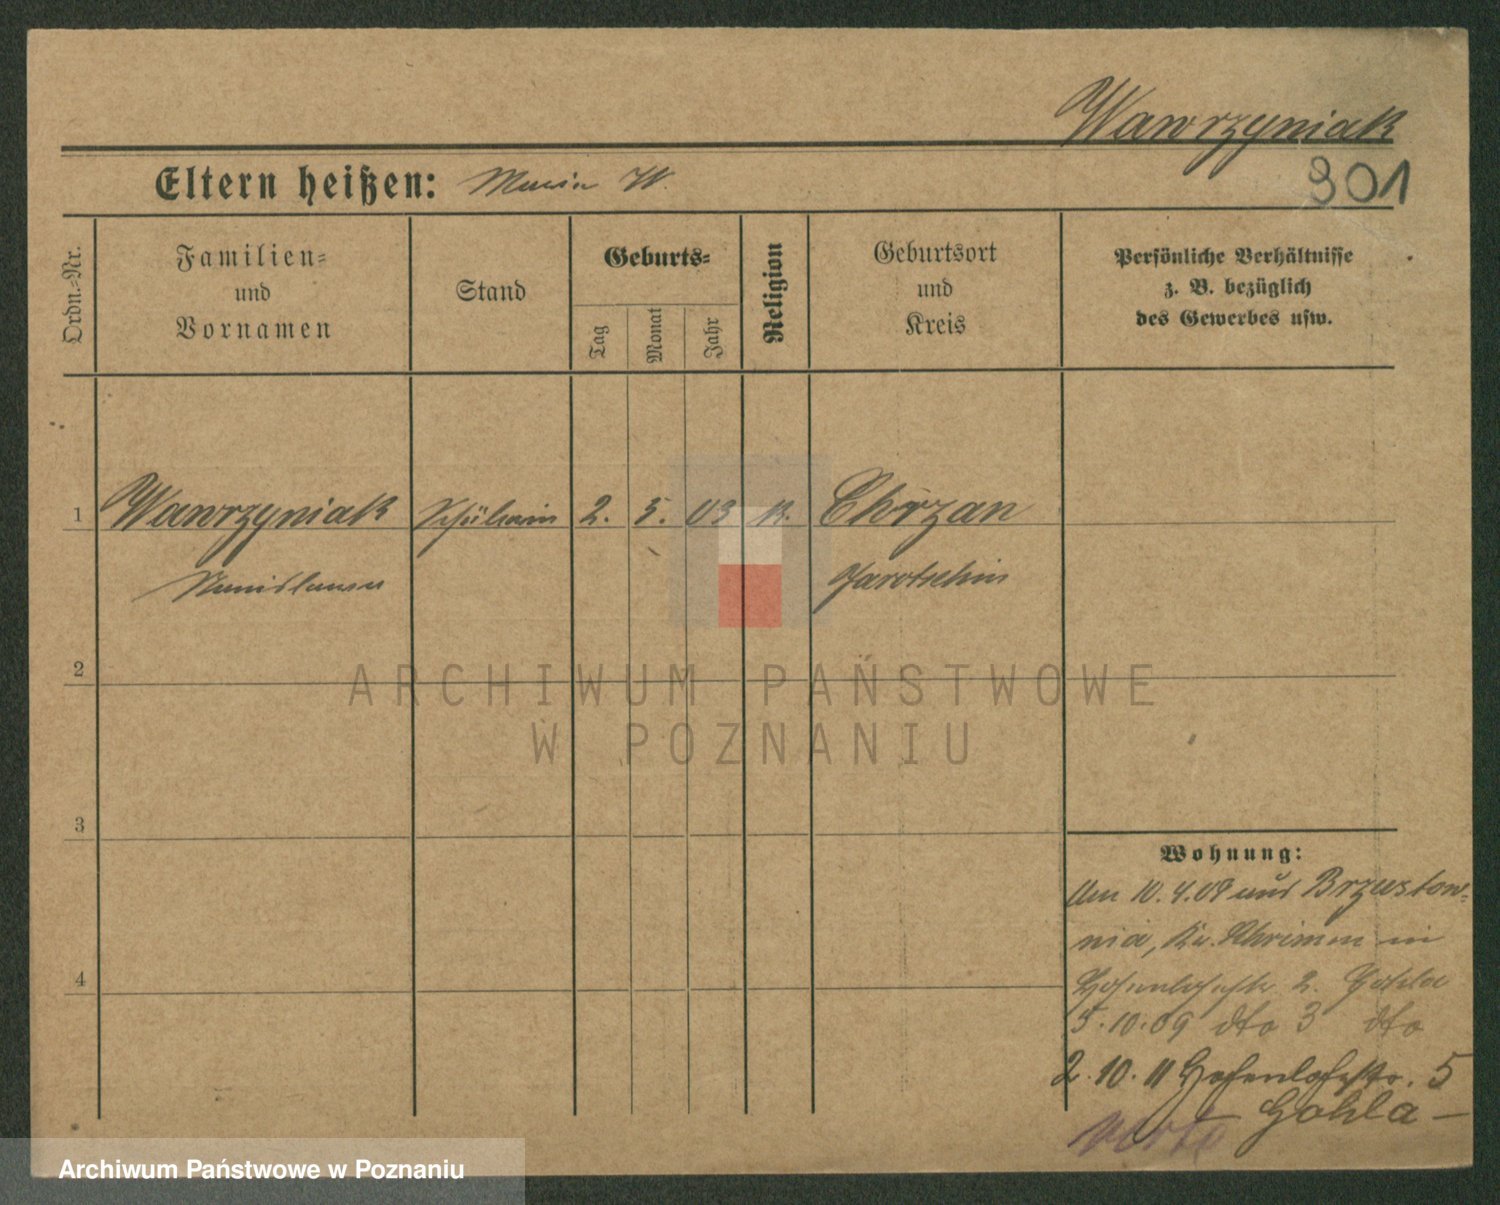 Wawrzyniak
301
Eltern heißen: Maria W.
Ordn.-Nr.
Familien-
und
Vornamen
Stand
Geburts-
Tag
Monat
Jahr
Religion
Geburtsort
und
Kreis
Persönliche Verhältnisse
z. B. bezüglich
des Gewerbes usw.
1 Wawrzyniak Schülerin 2. 5. 03 k. Chrzan
Stanislawa Jarotschin
2
3
4
Wohnung:
Am 10.4.09 aus Brzustow-
nia, Kr. Schrimm in
Hohenlohestr 2. Gohla
5.10.09 dto 3 dto
2.10.11 Hohenlohestr. 5
– Gohla –
verte
ARCHIWUM PAŃSTWOWE
W POZNANIU
Archiwum Państwowe w Poznaniu